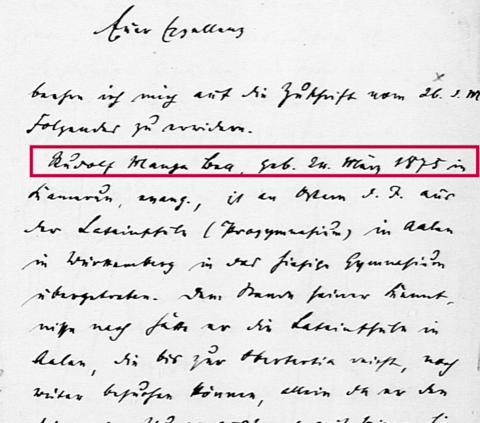 Euer Exzellenz
beehre ich mich auf die Zuschrift vom 26. d. M
Folgendes zu erwidern.
Rudolf Manga Bell, geb. 24. März 1875 in
Kamerun, evang., ist an Ostern d. J. aus
der Lateinschule (Progymnasium) in Aalen
in Württemberg in das hiesige Gymnasium
übergetreten. Dem Stande seiner Kennt-
nisse nach hätte er die Lateinschule in
Aalen, die bis zur Obertertia reicht, noch
weiter besuchen können, allein da er den